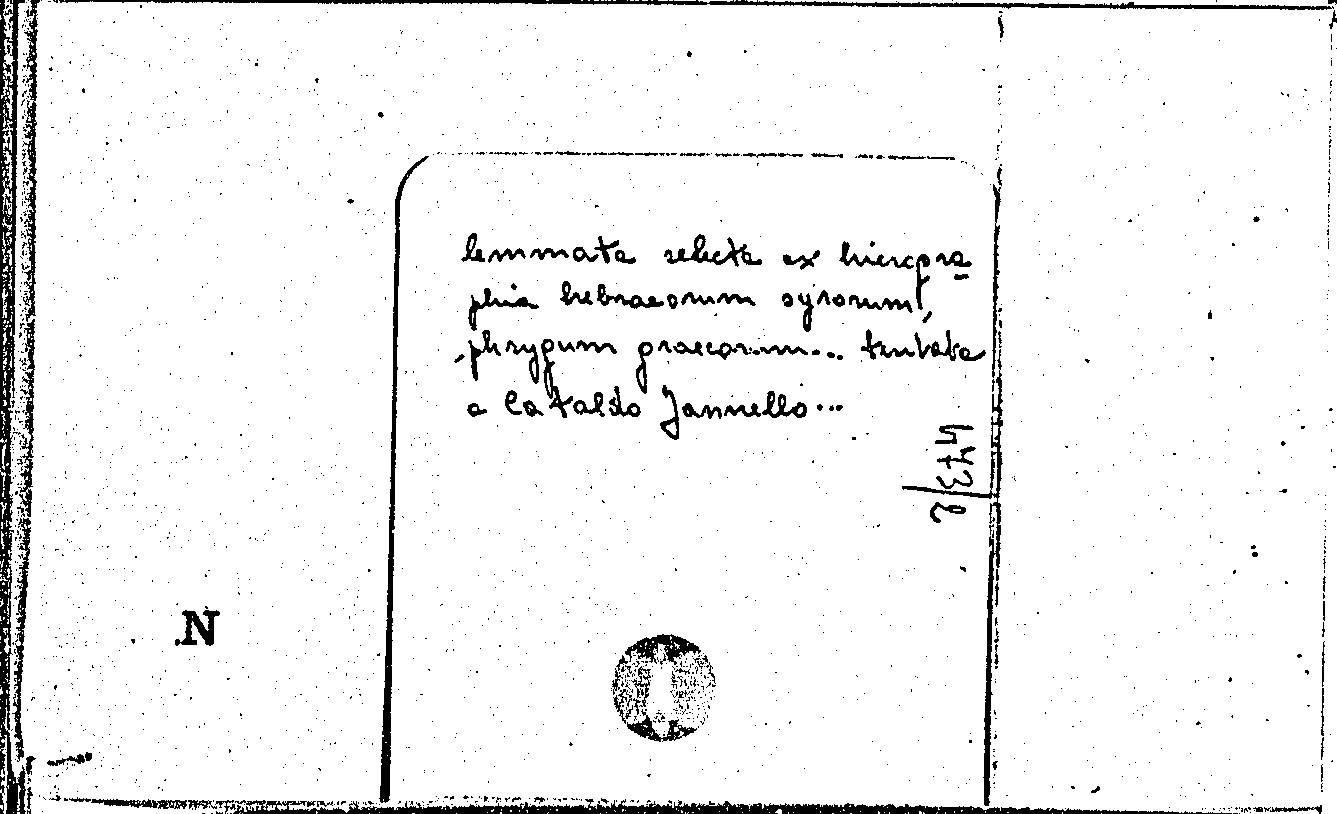 lemmata selecta ex hierogra-
phia hebraeorum syrorum,
phrygum graecorum... tentata
a Cataldo Jannello...
473/2
N